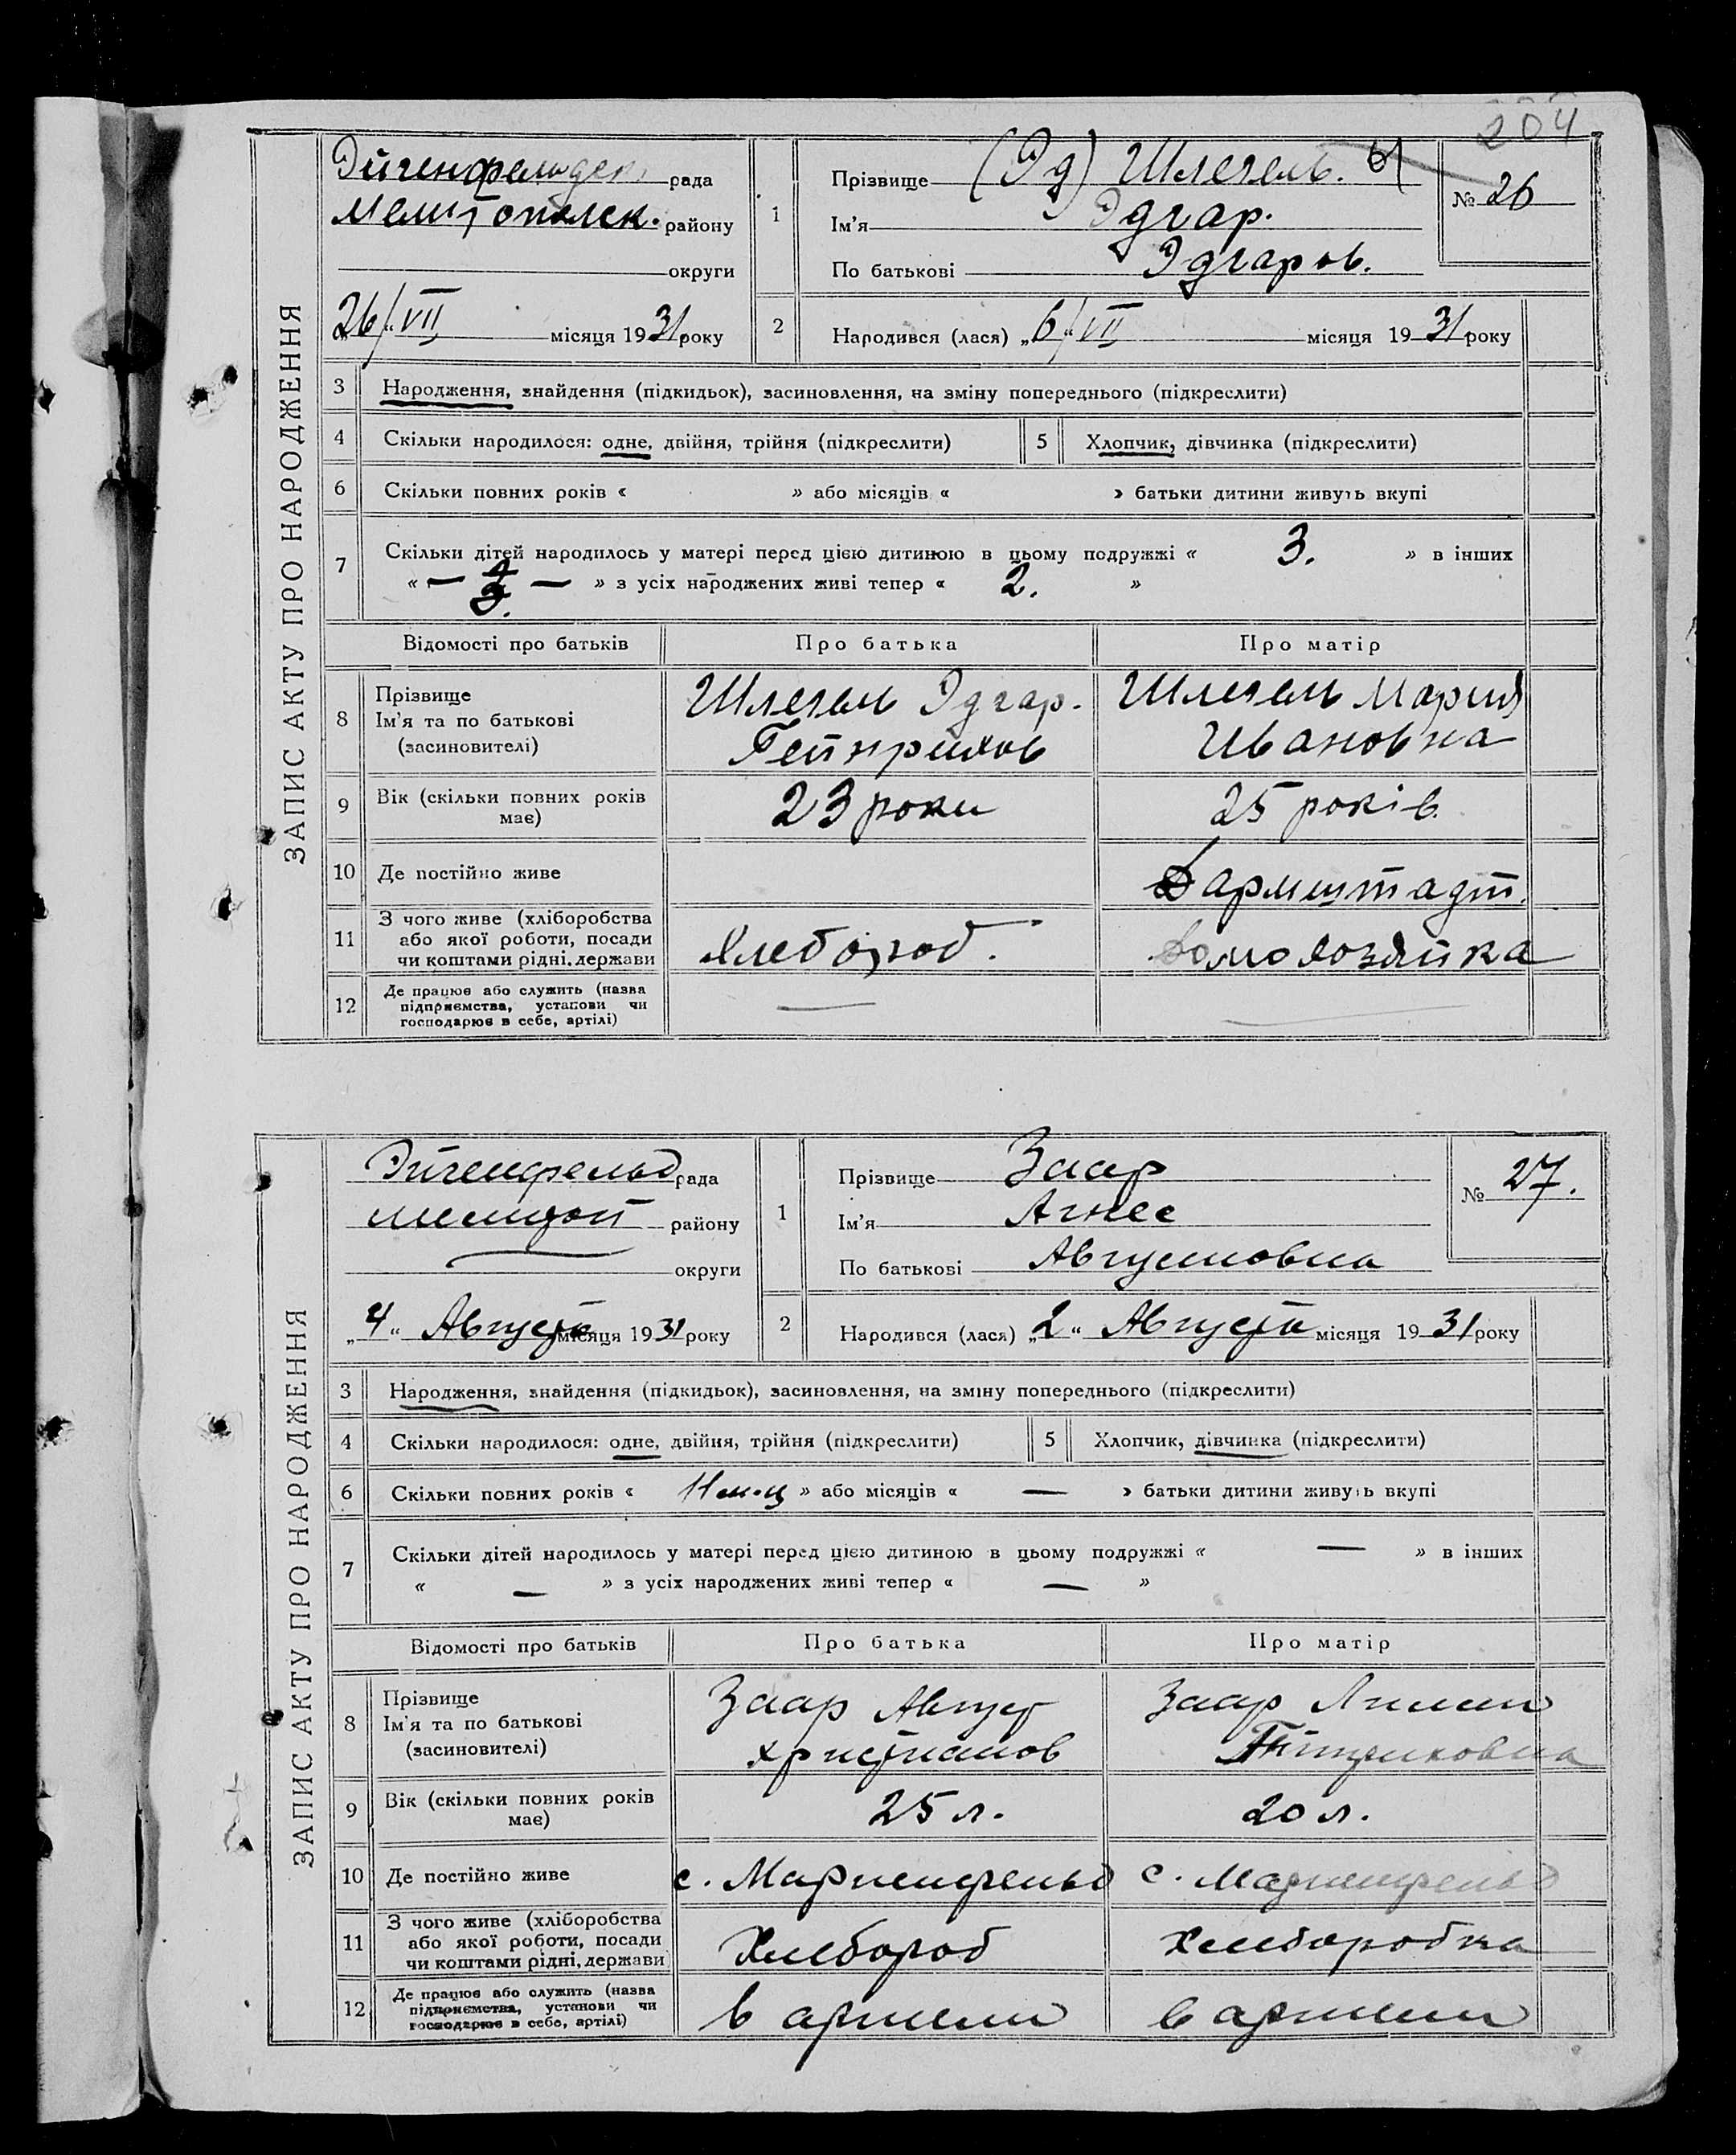 204
ЗАПИС АКТУ ПРО НАРОДЖЕННЯ
Эйгенфельдск. рада
Мелитопольск. району
округи
„26“ VII місяця 1931 року
1
Прізвище (Эд) Шлегель.
Ім'я Эдгар.
По батькові Эдгаров.
№ 26
2 Народився (лася) „6“ VII місяця 1931 року
3 Народження, знайдення (підкидьок), засиновлення, на зміну попереднього (підкреслити)
4 Скільки народилося: одне, двійня, трійня (підкреслити) 5 Хлопчик, дівчинка (підкреслити)
6 Скільки повних років « » або місяців « » батьки дитини живуть вкупі
7 Скільки дітей народилось у матері перед цією дитиною в цьому подружжі « 3. » в інших
« — — » з усіх народжених живі тепер « 2. »
Відомості про батьків Про батька Про матір
8 Прізвище
Ім'я та по батькові
(засиновителі)
Шлегель Эдгар.
Гейнрихов
Шлегель Мария
Ивановна
9 Вік (скільки повних років має) 23 роки 25 років.
10 Де постійно живе Дармштадт.
11 З чого живе (хліборобства
або якої роботи, посади
чи коштами рідні, держави
Хлебороб. Домохозяйка
12 Де працює або служить (назва
підприємства, установи чи
господарює в себе, артілі)
— —
ЗАПИС АКТУ ПРО НАРОДЖЕННЯ
Эйгенфельд рада
Мелитоп району
округи
„4“ Августа місяця 1931 року
1
Прізвище Заар
Ім'я Агнес
По батькові Августовна
№ 27.
2 Народився (лася) „2“ Августа місяця 1931 року
3 Народження, знайдення (підкидьок), засиновлення, на зміну попереднього (підкреслити)
4 Скільки народилося: одне, двійня, трійня (підкреслити) 5 Хлопчик, дівчинка (підкреслити)
6 Скільки повних років « 11 м-ц » або місяців « — » батьки дитини живуть вкупі
7 Скільки дітей народилось у матері перед цією дитиною в цьому подружжі « — » в інших
« — » з усіх народжених живі тепер « — »
Відомості про батьків Про батька Про матір
8 Прізвище
Ім'я та по батькові
(засиновителі)
Заар Август
Христианов
Заар
9 Вік (скільки повних років має) 25 л. 20 л.
10 Де постійно живе с. Мариенфельд с. Мариенфельд
11 З чого живе (хліборобства
або якої роботи, посади
чи коштами рідні, держави
Хлебороб Хлеборобка
12 Де працює або служить (назва
підприємства, установи чи
господарює в себе, артілі)
в артели в артели